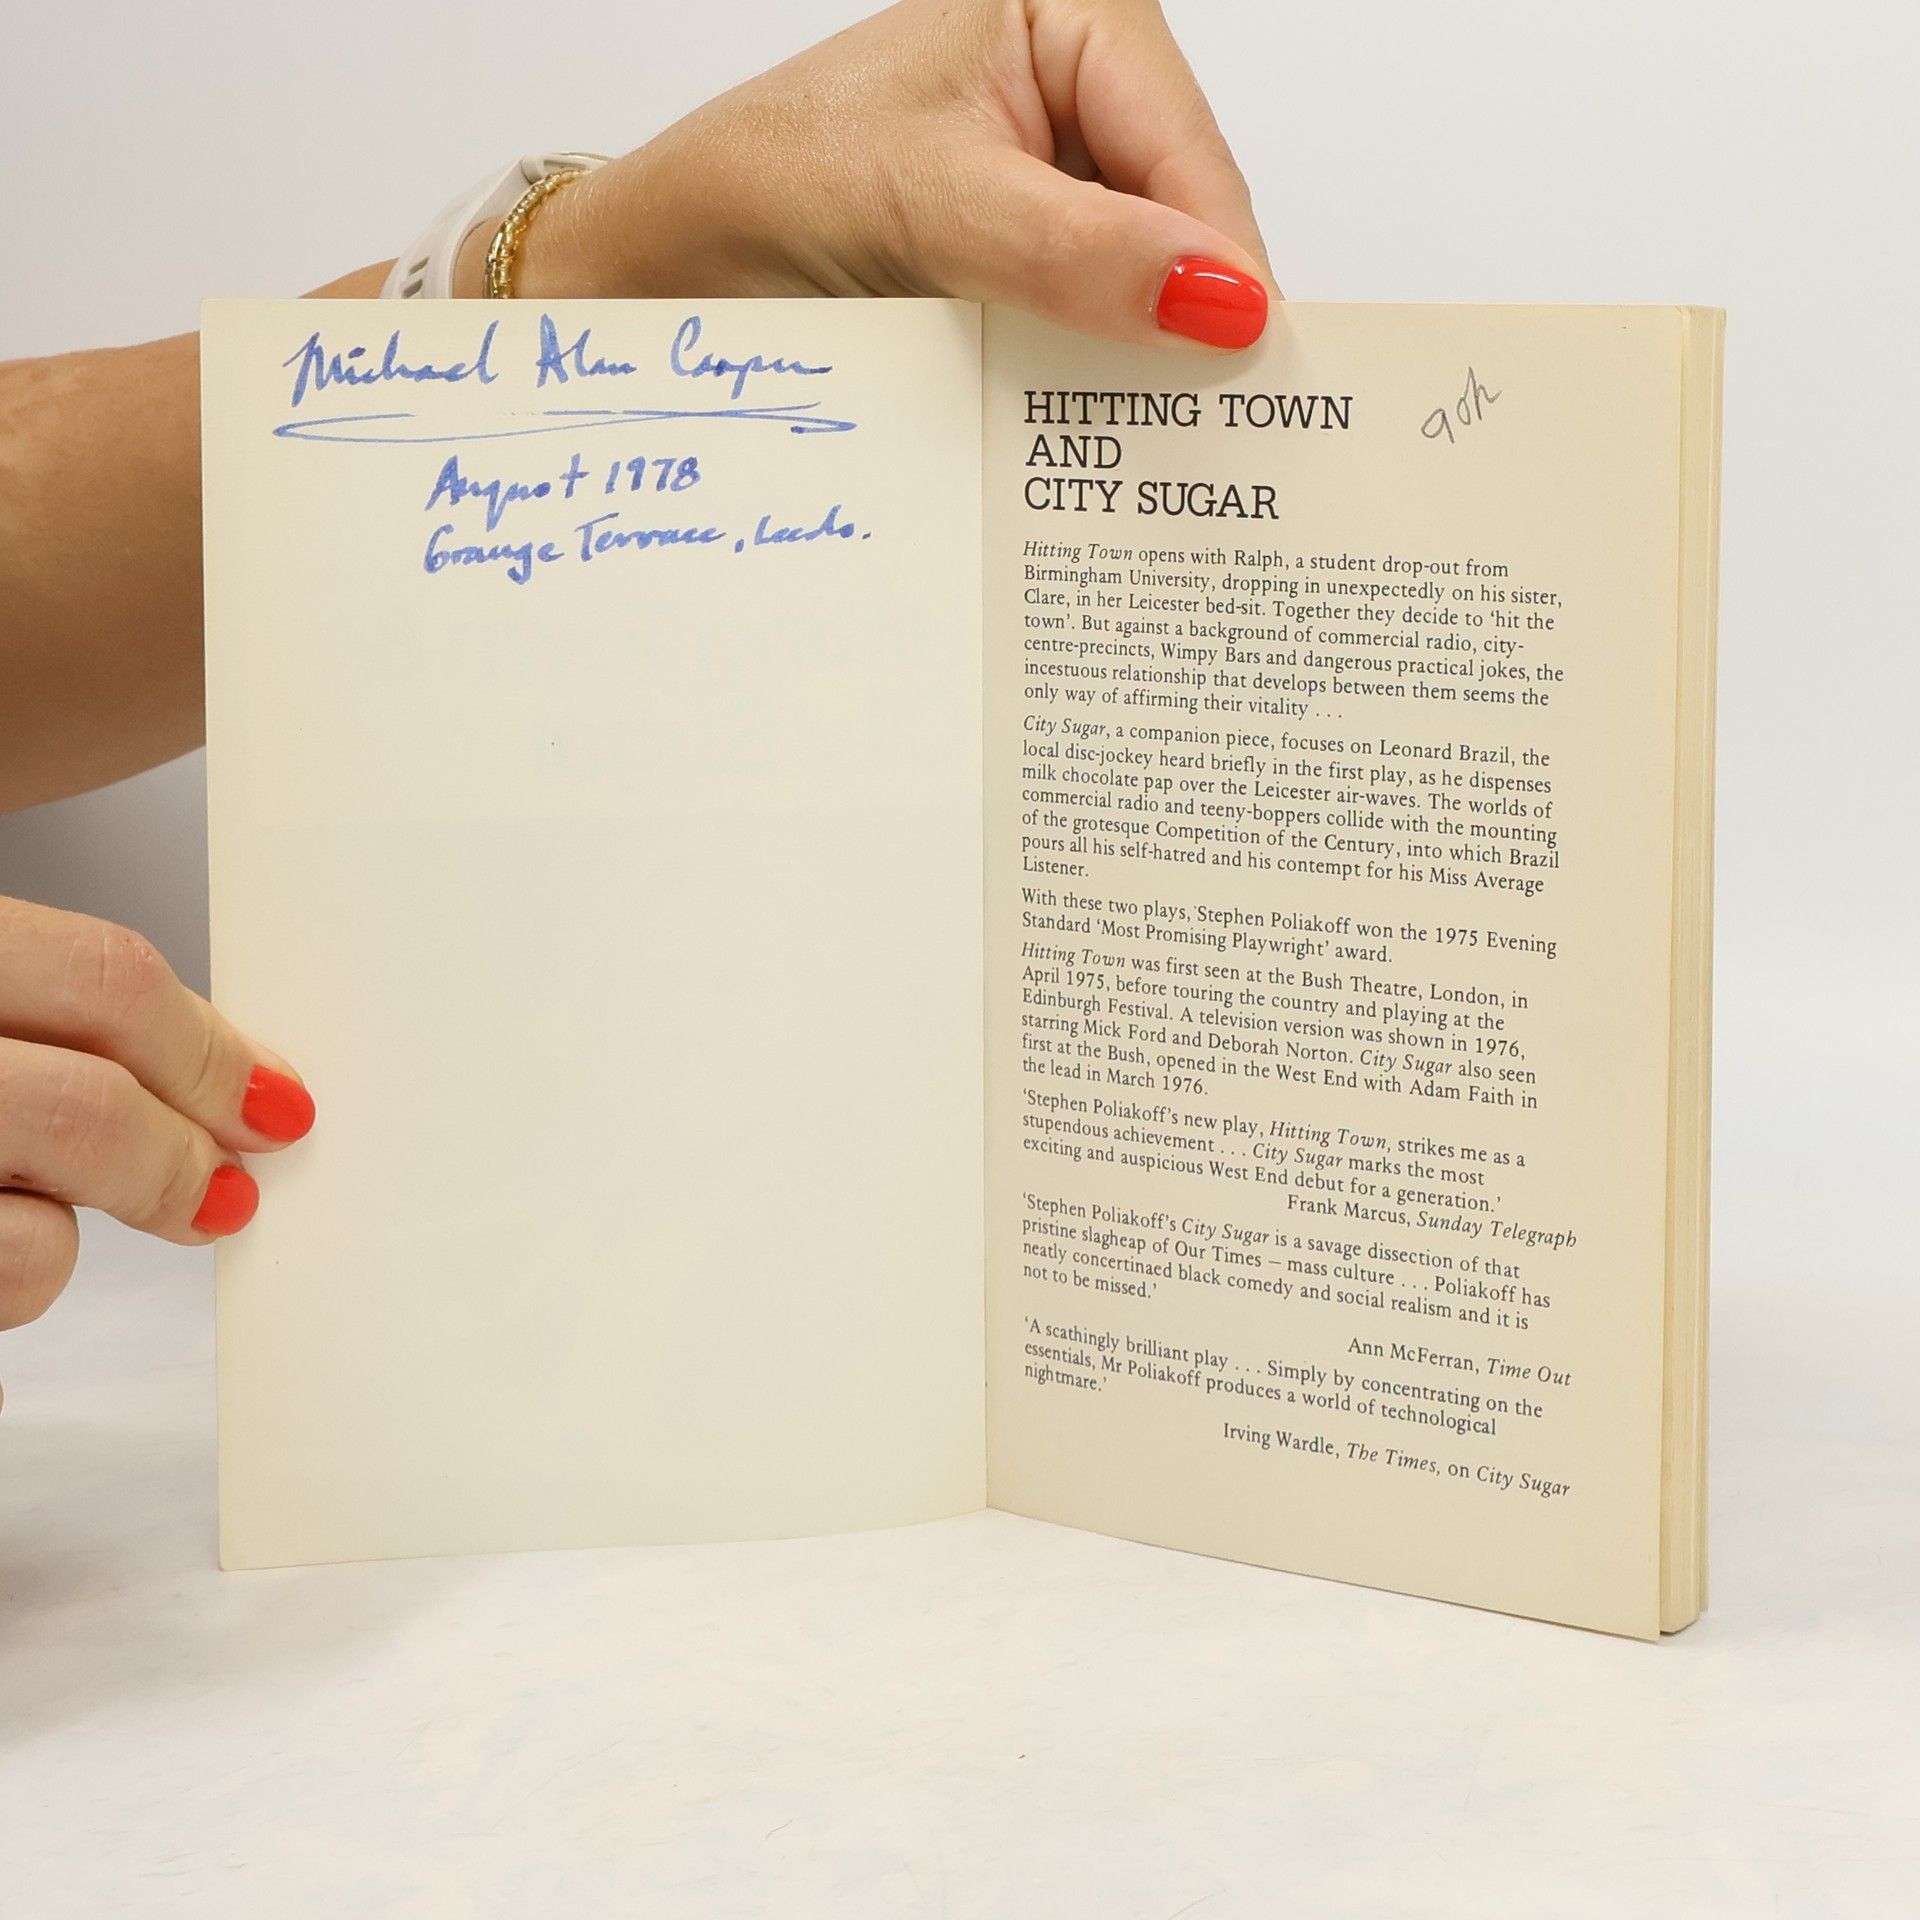 Michael Alan Cooper
August 1978
Grange Terrace, Leeds.
90p
HITTING TOWN
AND
CITY SUGAR
Hitting Town opens with Ralph, a student drop-out from
Birmingham University, dropping in unexpectedly on his sister,
Clare, in her Leicester bed-sit. Together they decide to ‘hit the
town’. But against a background of commercial radio, city-
centre-precincts, Wimpy Bars and dangerous practical jokes, the
incestuous relationship that develops between them seems the
only way of affirming their vitality . . .
City Sugar, a companion piece, focuses on Leonard Brazil, the
local disc-jockey heard briefly in the first play, as he dispenses
milk chocolate pap over the Leicester air-waves. The worlds of
commercial radio and teeny-boppers collide with the mounting
of the grotesque Competition of the Century, into which Brazil
pours all his self-hatred and his contempt for his Miss Average
Listener.
With these two plays, Stephen Poliakoff won the 1975 Evening
Standard ‘Most Promising Playwright’ award.
Hitting Town was first seen at the Bush Theatre, London, in
April 1975, before touring the country and playing at the
Edinburgh Festival. A television version was shown in 1976,
starring Mick Ford and Deborah Norton. City Sugar also seen
first at the Bush, opened in the West End with Adam Faith in
the lead in March 1976.
‘Stephen Poliakoff’s new play, Hitting Town, strikes me as a
stupendous achievement . . . City Sugar marks the most
exciting and auspicious West End debut for a generation.’
Frank Marcus, Sunday Telegraph
‘Stephen Poliakoff’s City Sugar is a savage dissection of that
pristine slagheap of Our Times – mass culture . . . Poliakoff has
neatly concertinaed black comedy and social realism and it is
not to be missed.’
Ann McFerran, Time Out
‘A scathingly brilliant play . . . Simply by concentrating on the
essentials, Mr Poliakoff produces a world of technological
nightmare.’
Irving Wardle, The Times, on City Sugar